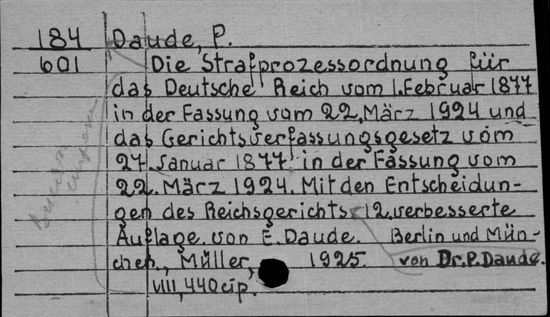 184 Daude, P.
601 Die Strafprozessordnung für
das Deutsche Reich vom 1. Februar 1877
in der Fassung vom 22. März 1924 und
das Gerichtsverfassungsgesetz vom
27. Januar 1877 in der Fassung vom
22. März 1924. Mit den Entscheidun-
gen des Reichsgerichts. 12. verbesserte
Auflage. von E. Daude. Berlin und Mün-
chen, Müller, 1925. von Dr. P. Daude.
VIII, 440 cip.